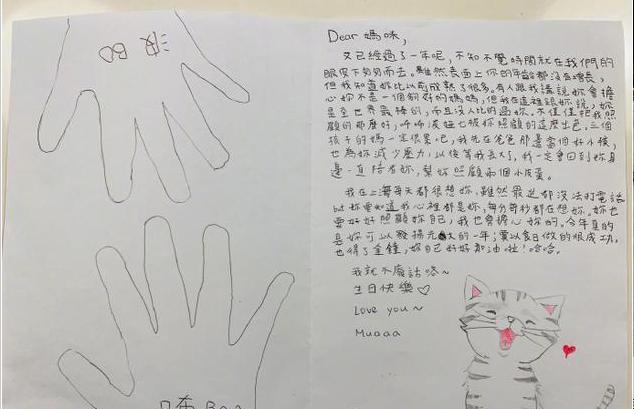 Dear 媽咪,
又已經過了一年呢,不知不覺時間就在我們的
眼皮下匆匆而去。雖然表面上你的年齡都沒有增長,
但我知道妳比以前成熟了很多。有人跟我講說妳會擔
心妳不是一個夠好的媽媽,但我在這裡跟妳說,妳
是全世界最棒的,而且沒人比的過妳。不僅僅把我照
顧的那麼好,
被妳照顧的這麼出色。三個
孩子的媽一定很累吧,我先在爸爸那邊當個好小孩,
也為妳減少壓力,以後等我長大了,我一定會回到妳身
邊一直陪著妳,幫妳照顧兩個小皮蛋。
我在上海每天都很想妳,雖然最近都沒法打電話
but 妳要知道我心裡都是妳,每分每秒都在想妳。妳也
要好好照顧妳自己,我也會擔心妳的。今年真的
是妳可以發揚光大的一年;實以食日做的很成功,
也得了金鐘,妳自己好好加油啦!哈哈。
我就不廢話咯~
生日快樂♡
Love you~
Muaaa
Bo